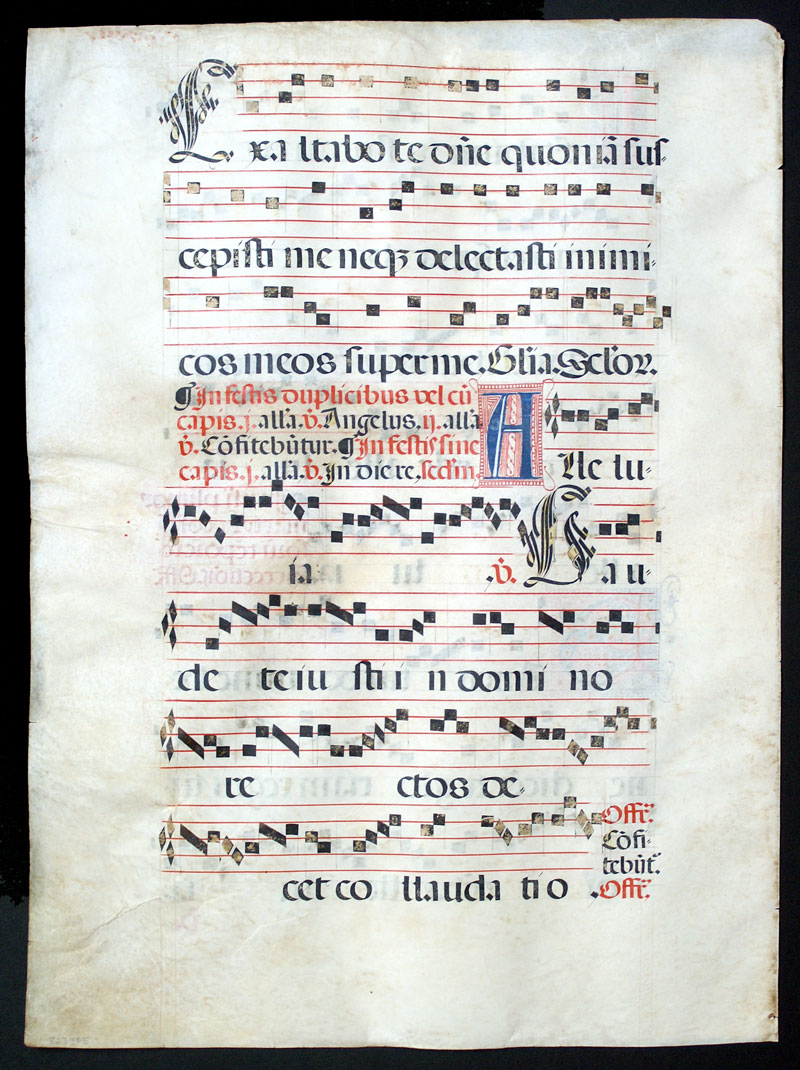 Exaltabo te dñe quoniã sus-
cepisti me neqʒ delectasti inimi-
cos meos super me. Glĩa. Seclor̃.
¶ In festis duplicibus vel cũ
capis. j. alla. v̈. Angelus. ij. alla
v̈. Cõfitebũtur. ¶ In festis sine
capis. j. alla. v̈. In die re, secd̃m.
Alle lu-
ia. v̈. Lau-
de te iu sti i n domi no
re ctos de-
cet co llauda tio.
Offr̃. Cõfi-
tebũt̃.
Offr̃.